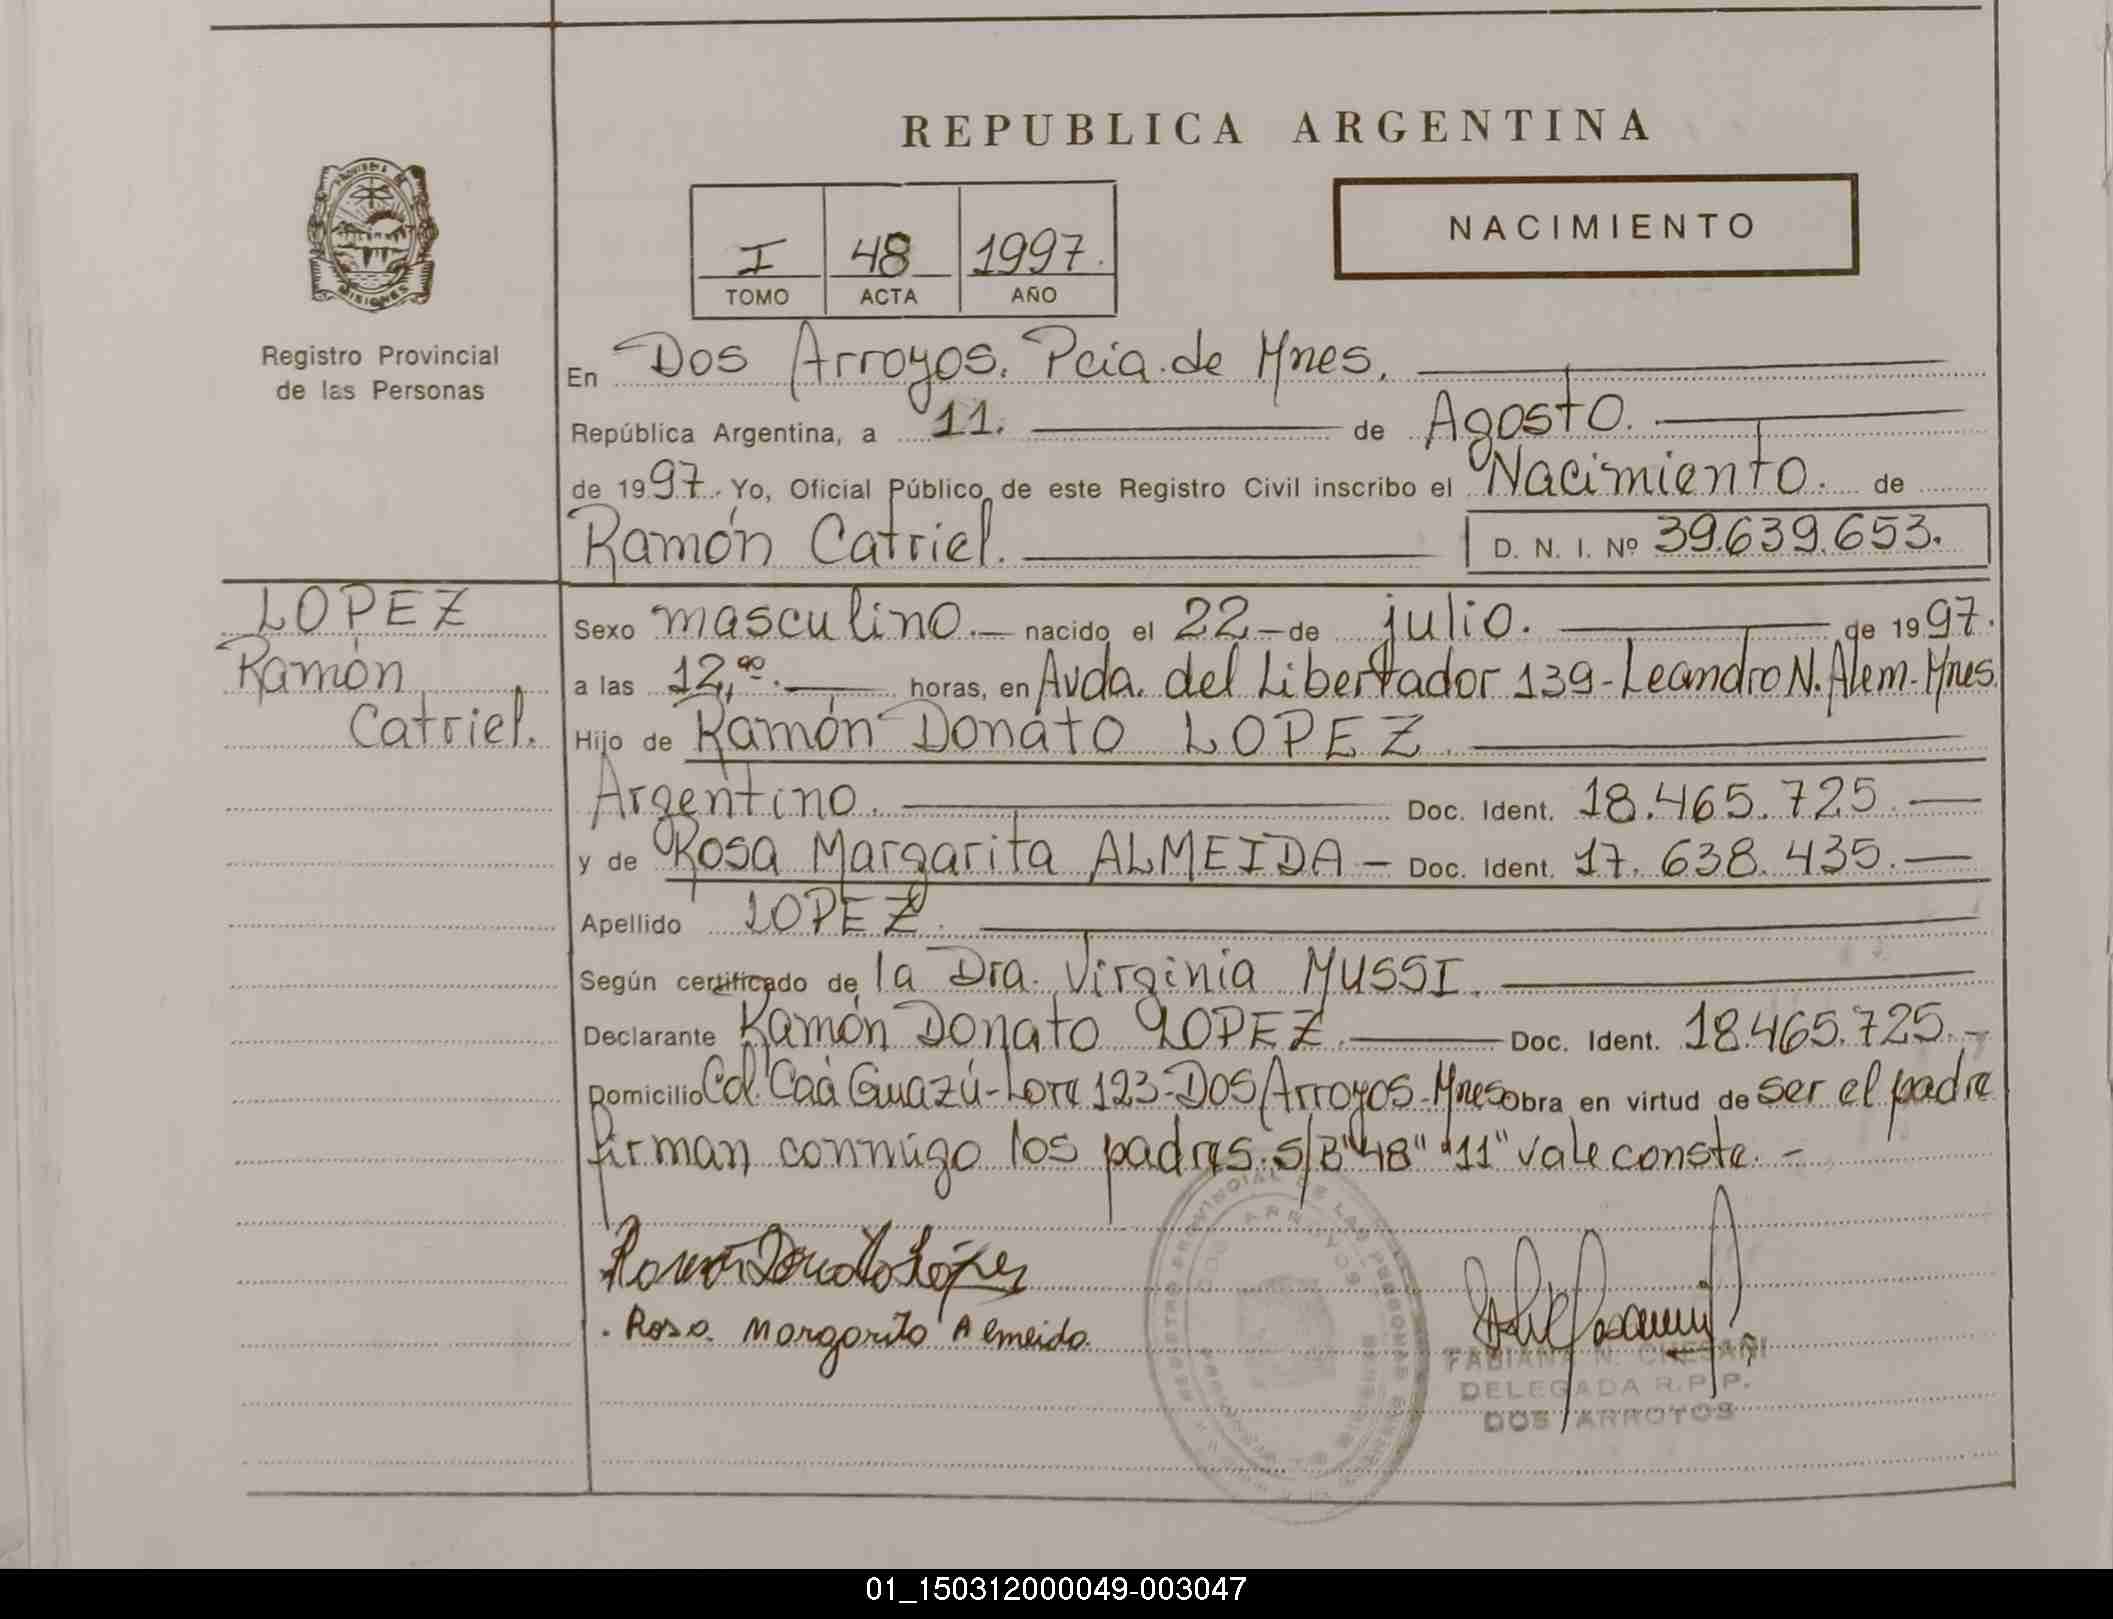 REPUBLICA ARGENTINA
NACIMIENTO
I 48 1997.
TOMO ACTA AÑO
PROVINCIA
MISIONES
Registro Provincial
de las Personas
En Dos Arroyos. Pcia. de Mnes.
República Argentina, a 11. de Agosto.
de 1997. Yo, Oficial Público de este Registro Civil inscribo el Nacimiento. de
Ramón Catriel. D. N. I. Nº 39.639.653.
LOPEZ
Ramón
Catriel.
Sexo masculino.— nacido el 22— de julio. de 1997.
a las 12,00. horas, en Avda. del Libertador 139-Leandro N. Alem-Mnes.
Hijo de Ramón Donato LOPEZ
Argentino. Doc. Ident. 18.465.725.—
y de Rosa Margarita ALMEIDA — Doc. Ident. 17.638.435.—
Apellido LOPEZ.
Según certificado de la Dra. Virginia MUSSI.
Declarante Ramón Donato LOPEZ.— Doc. Ident. 18.465.725.-
Domicilio Col. Caá Guazú-Lote 123-Dos Arroyos-Mnes Obra en virtud de ser el padre
firman conmigo los padres. S/B "48" "11" vale conste. -
Ramón Donato López
. Rosa Margarita Almeida
REGISTRO PROVINCIAL DE LAS PERSONAS
DOS ARROYOS
MISIONES
FABIANA N. CHESAÑI
DELEGADA R.P.P.
DOS ARROYOS
01_150312000049-003047